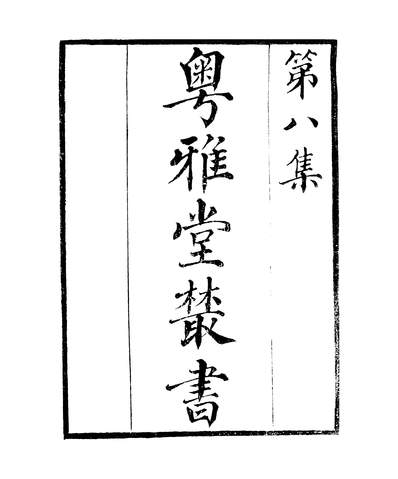 第八集
粵雅堂叢書